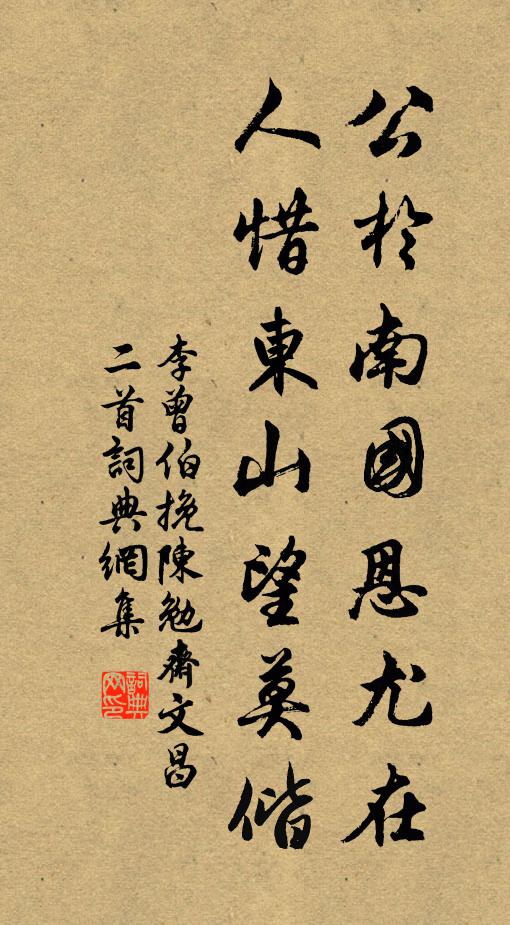 公於南國恩尤在
人惜東山望莫偕
李曾伯挽陳勉齋文昌
二首詞典網集
詞典网印